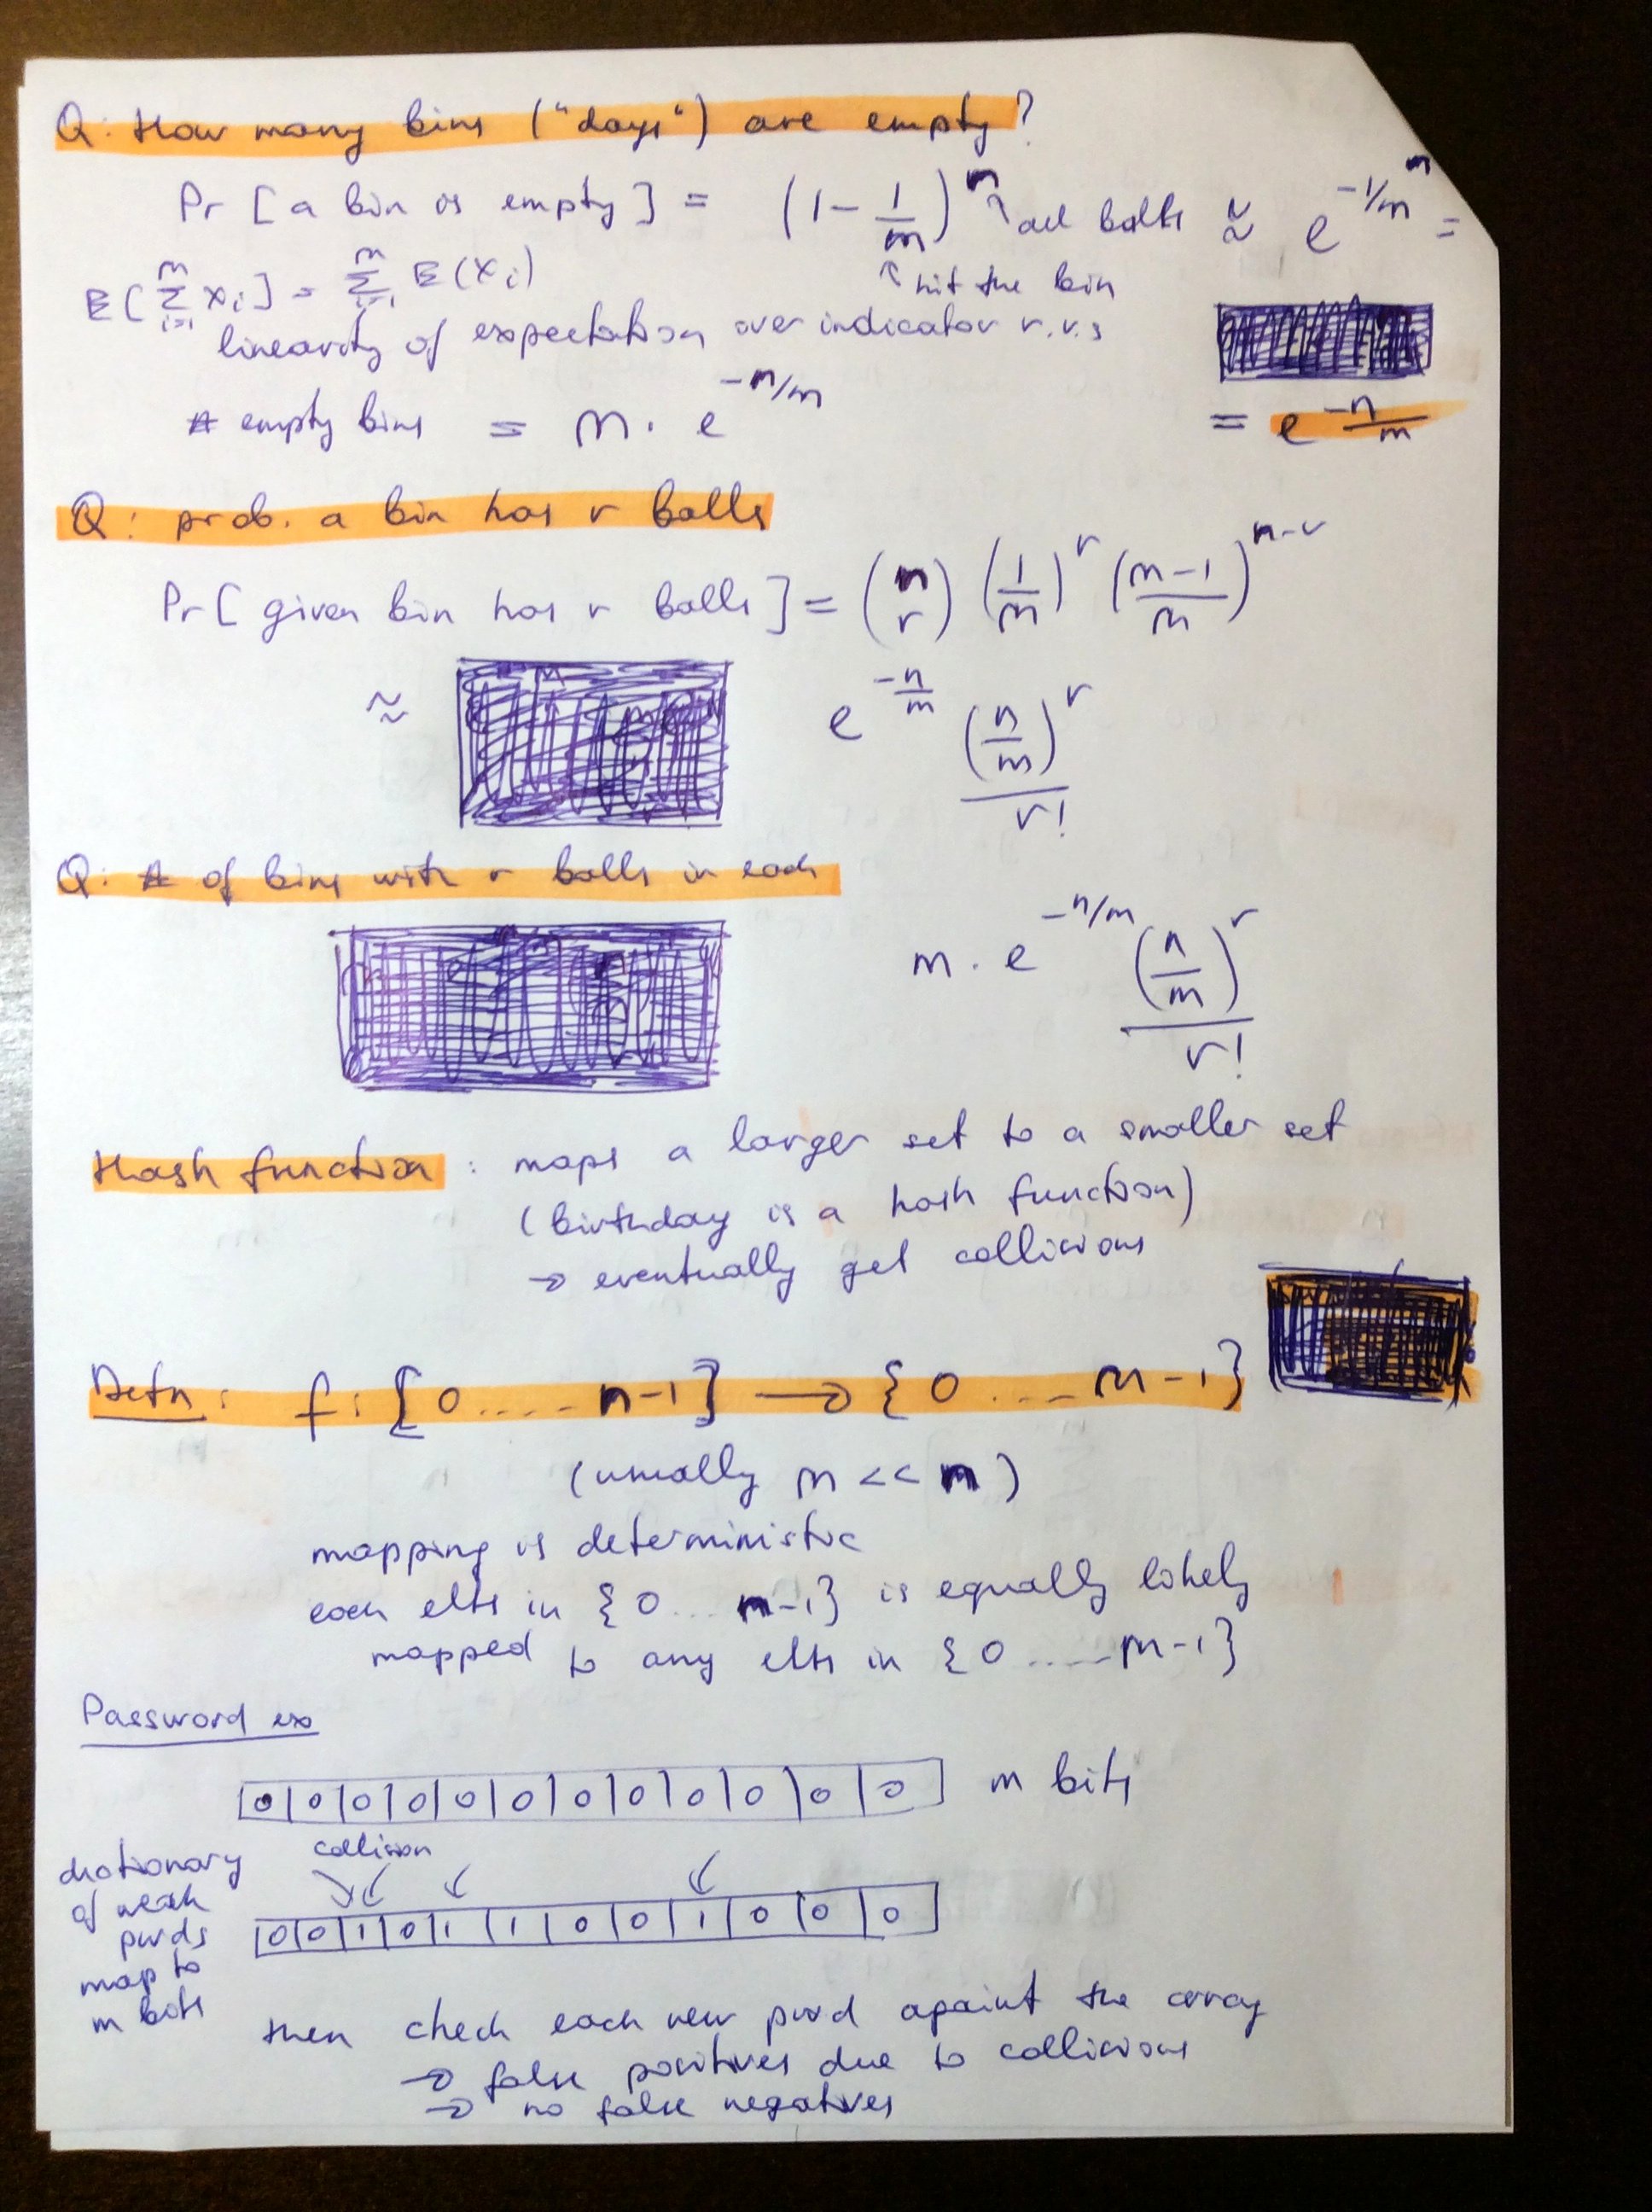 Q: How many bins ("days") are empty?
Pr [a bin is empty] = (1 - 1/m)^n ↖ all balls ≈ e^{-1/m^n} =
↖ hit the bin
E[∑_{i=1}^{m} X_i] = ∑_{i=1}^{m} E(X_i)
linearity of expectation over indicator r.v.s
# empty bins = m · e^{-n/m}
= e^{-n/m}
Q: prob. a bin has r balls
Pr [given bin has r balls] = (n r) (1/m)^r ((m-1)/m)^{n-r}
≈ e^{-n/m} (n/m)^r / r!
Q: # of bins with r balls in each
m · e^{-n/m} (n/m)^r / r!
Hash function : maps a larger set to a smaller set
(birthday is a hash function)
→ eventually get collisions
Defn : f: {0 .... n-1} → {0 .... m-1}
(usually m << n)
mapping is deterministic
each elts in {0 ... n-1} is equally likely
mapped to any elts in {0 .... m-1}
Password ex
0 0 0 0 0 0 0 0 0 0 0 0 m bits
collision
dictionary
of weak
pwds
map to
m bits
0 0 1 0 1 1 0 0 1 0 0 0
then check each new pwd against the array
→ false positives due to collisions
→ no false negatives